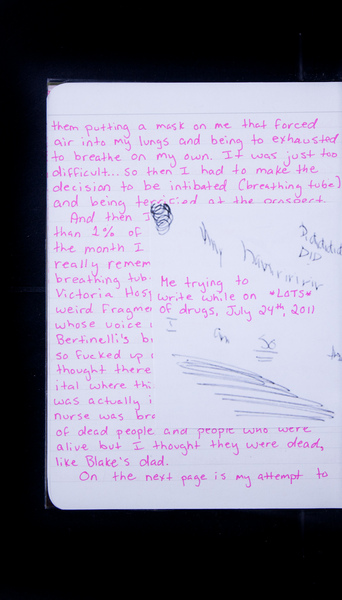 them putting a mask on me that forced
air into my lungs and being to exhausted
to breathe on my own. It was just too
difficult... so then I had to make the
decision to be intibated (breathing tube)
and being terrified at the prospect.
And then I
than 2% of
the month I
really remem
breathing tub
Victoria Hosp
weird Fragme
whose voice
Bertinelli's b
so fucked up
thought there
ital where thi
was actually i
nurse was bre
of dead people and people who were
alive but I thought they were dead,
like Blake's dad.
On the next page is my attempt to
Why
DID
Me trying to
write while on *LOTS*
of drugs, July 24th, 2011
I am so